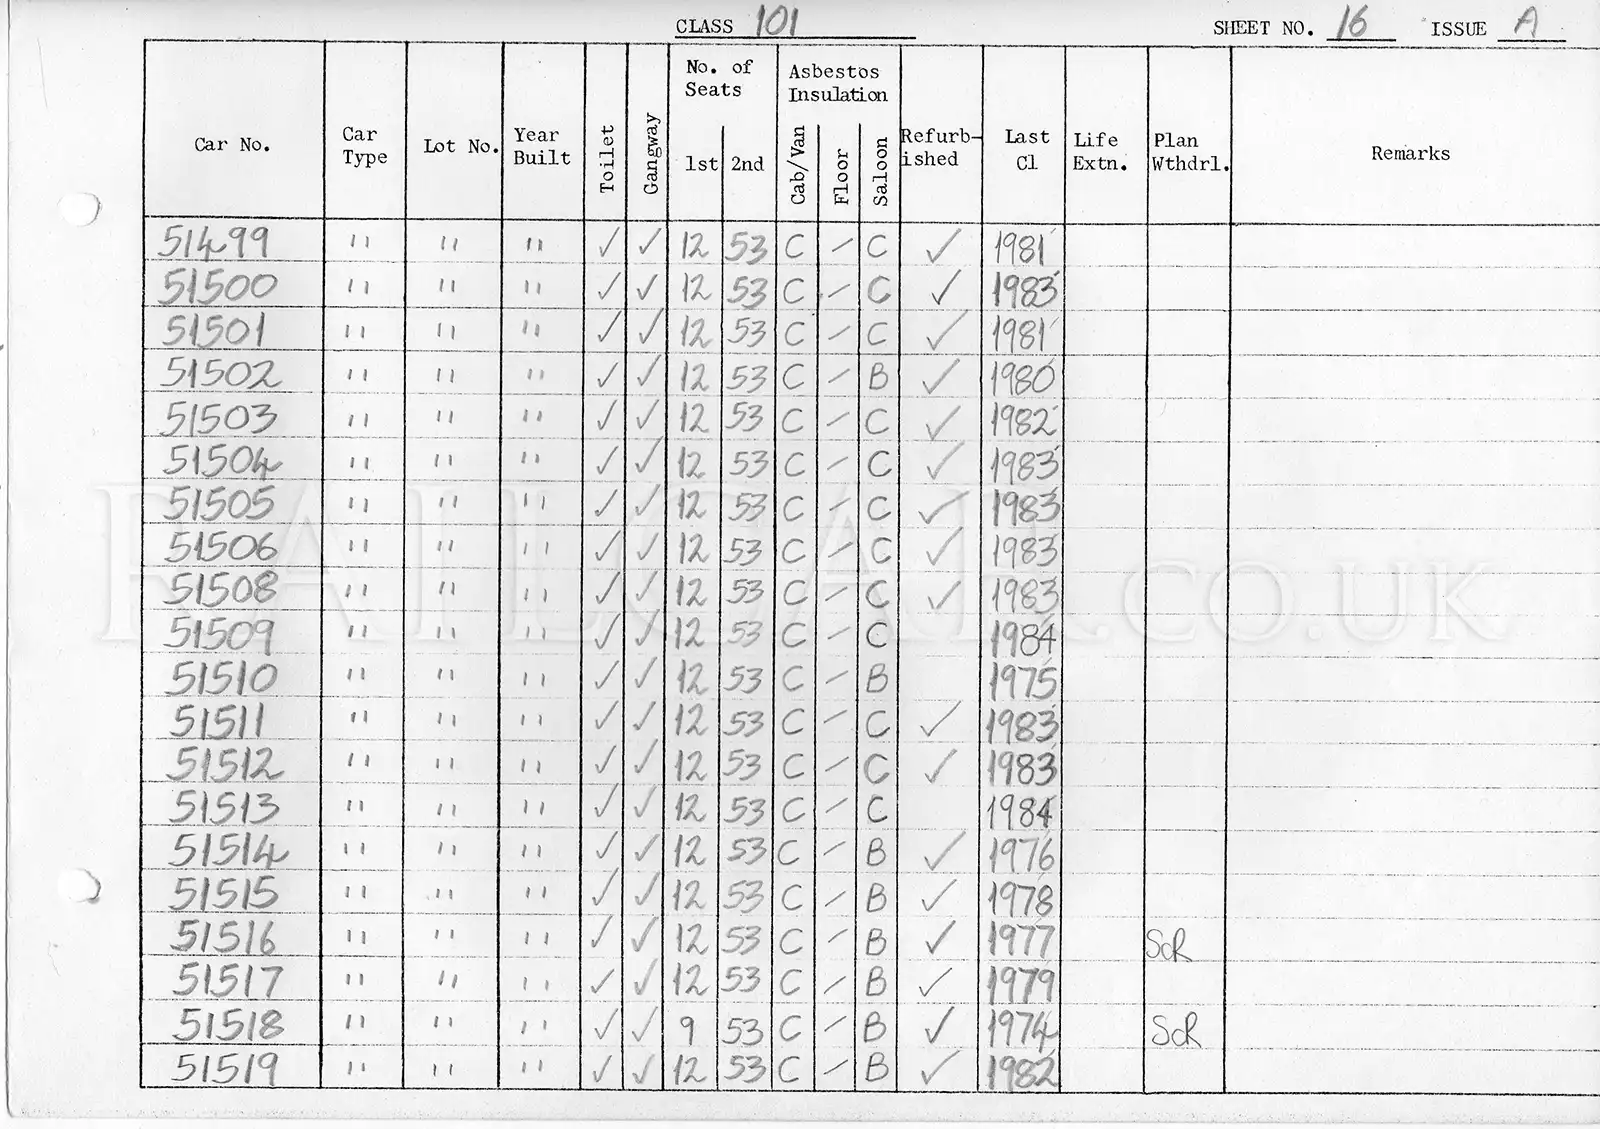 CLASS 101 SHEET NO. 16 ISSUE A
Car No. Car Type Lot No. Year Built Toilet Gangway No. of Seats 1st 2nd Asbestos Insulation Cab/Van Floor Saloon Refurb-ished Last Cl Life Extn. Plan Wthdrl. Remarks
51499 " " " ✓ ✓ 12 53 C - C ✓ 1981
51500 " " " ✓ ✓ 12 53 C - C ✓ 1983
51501 " " " ✓ ✓ 12 53 C - C ✓ 1981
51502 " " " ✓ ✓ 12 53 C - B ✓ 1980
51503 " " " ✓ ✓ 12 53 C - C ✓ 1982
51504 " " " ✓ ✓ 12 53 C - C ✓ 1983
51505 " " " ✓ ✓ 12 53 C - C ✓ 1983
51506 " " " ✓ ✓ 12 53 C - C ✓ 1983
51508 " " " ✓ ✓ 12 53 C - C ✓ 1983
51509 " " " ✓ ✓ 12 53 C - C 1984
51510 " " " ✓ ✓ 12 53 C - B 1975
51511 " " " ✓ ✓ 12 53 C - C ✓ 1983
51512 " " " ✓ ✓ 12 53 C - C ✓ 1983
51513 " " " ✓ ✓ 12 53 C - C 1984
51514 " " " ✓ ✓ 12 53 C - B ✓ 1976
51515 " " " ✓ ✓ 12 53 C - B ✓ 1978
51516 " " " ✓ ✓ 12 53 C - B ✓ 1977 ScR
51517 " " " ✓ ✓ 12 53 C - B ✓ 1979
51518 " " " ✓ ✓ 9 53 C - B ✓ 1974 ScR
51519 " " " ✓ ✓ 12 53 C - B ✓ 1982
RAILCAR.CO.UK